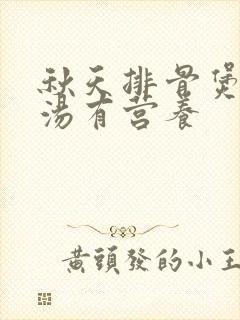 秋天排骨煲
湯有营養
黄頭發的小王